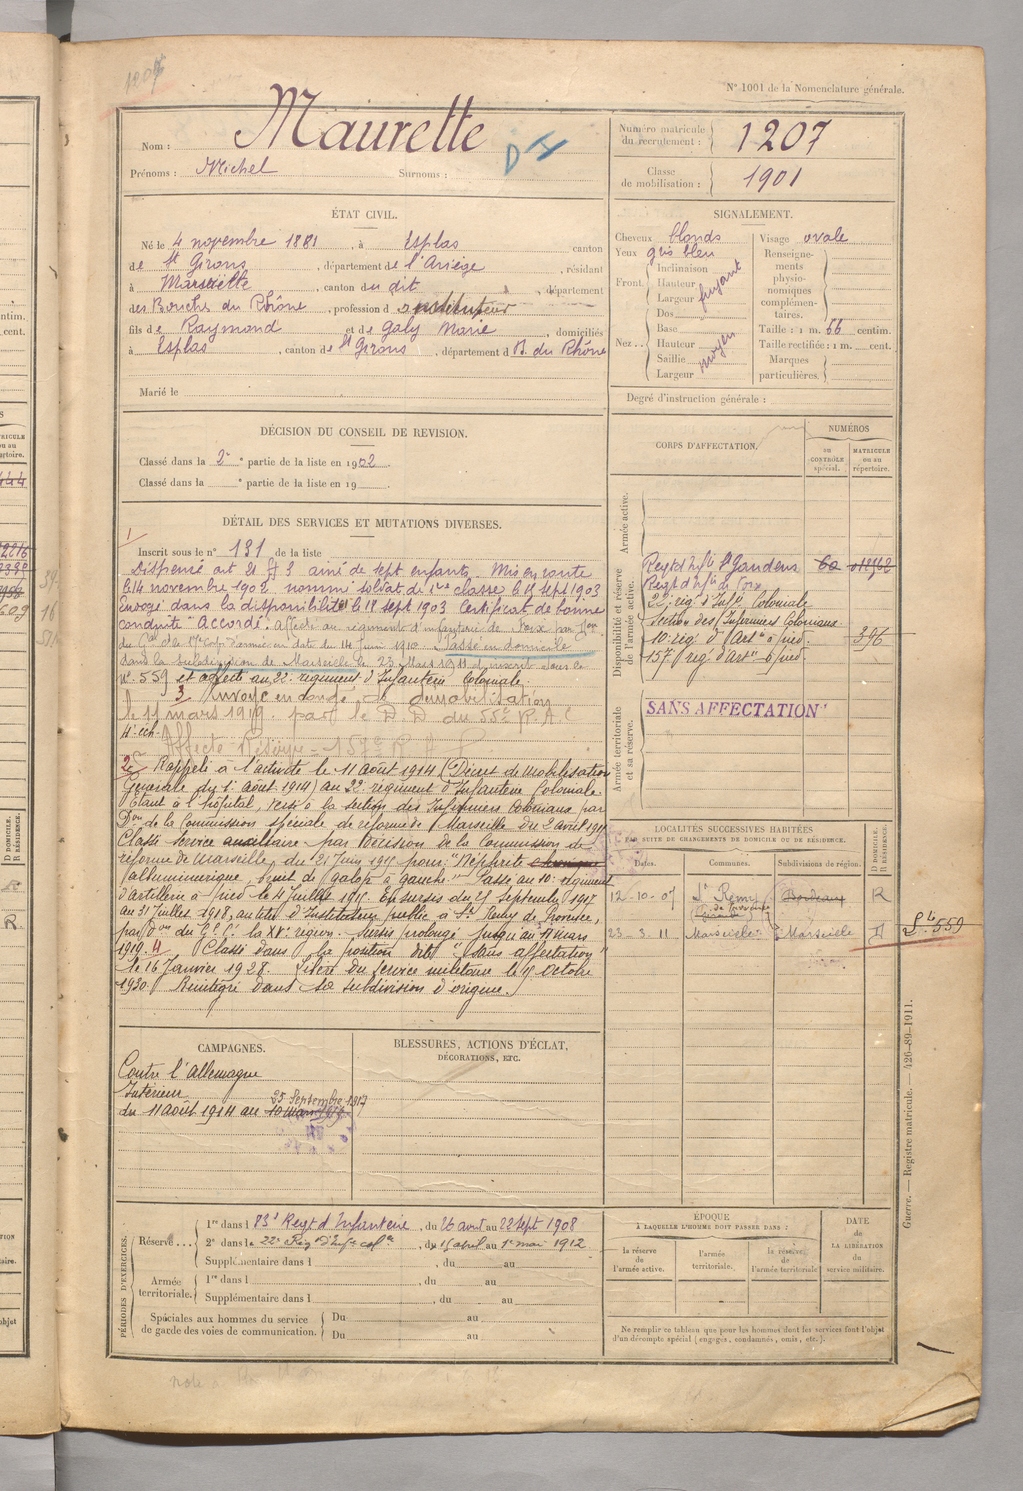 1207
N° 1001 de la Nomenclature générale.
Nom : Maurette
Prénoms : Michel Surnoms :
Numéro matricule du recrutement : 1207
Classe de mobilisation : 1901
ÉTAT CIVIL.
Né le 4 novembre 1881, à Esplas canton
de St Girons, département de l'Ariège, résidant
à Marseille, canton du dit, département
des Bouches du Rhône, profession d'instituteur
fils de Raymond et de Galy Marie, domiciliés
à Esplas, canton de St Girons, département d B. du Rhône
Marié le
SIGNALEMENT.
Cheveux blonds
Yeux gris bleu
Front. Inclinaison Hauteur Largeur fuyant
Nez Dos Base Hauteur Saillie Largeur moyen
Visage ovale
Renseignements physionomiques complémentaires.
Taille : 1 m. 66 centim.
Taille rectifiée : 1 m. cent.
Marques particulières.
Degré d'instruction générale :
DÉCISION DU CONSEIL DE REVISION.
Classé dans la 2e partie de la liste en 1902
Classé dans la e partie de la liste en 19
CORPS D'AFFECTATION.
NUMÉROS
au CONTRÔLE spécial.
MATRICULE ou au répertoire.
Armée active.
Disponibilité et réserve de l'armée active.
Regt d'Infie St Gaudens
Regt d'Infie de Foix
22e rég. d'Infie Coloniale
Section des Infirmiers Coloniaux
10e rég. d'Artie à pied. 396
157e rég. d'Artie à pied.
Armée territoriale et sa réserve.
SANS AFFECTATION
DÉTAIL DES SERVICES ET MUTATIONS DIVERSES.
1
Inscrit sous le n° 131 de la liste
Dispensé art 21 § 3 ainé de sept enfants. Mis en route
le 14 novembre 1902 nommé soldat de 1ère classe le 18 sept 1903
Envoyé dans la disponibilité le 18 sept 1903 Certificat de bonne
conduite "Accordé". Affecté au régiment d'infanterie de Foix par
du Gal Ct le 17e Corps d'armée en date du 14 Juin 1910. Passé en domicile
dans la subdivision de Marseille le 23 Mars 1911 et inscrit sous le
n° 559 et affecté au 22e régiment d'Infanterie Coloniale.
3 Envoyé en congé de démobilisation
le 11 mars 1919 par le D. D du 55e R. A. C
4e ech.
Affecté Réserve 157e R. A. P.
2e Rappelé à l'activité le 11 Août 1914 (Décret de Mobilisation
Générale du 1er Août 1914) au 22e régiment d'Infanterie Coloniale.
Etant à l'hôpital, versé à la section des Infirmiers Coloniaux par
Don de la Commission spéciale de réforme de Marseille du 2 avril
Classé Service auxiliaire par Décision de la Commission de
réforme de Marseille, du 21 Juin pour "Néphrite chronique
albuminurique, bruit de galop à gauche". Passé au 10e régiment
d'artillerie à pied le 4 Juillet. En sursis du 25 Septembre 1917
au 31 Juillet 1918, au titre d'Instituteur public à St Remy de Provence,
par Don du Gl Ct la XVe région. Sursis prolongé jusqu'au mars
1919. 4 Classé dans la position dite "sans affectation"
le 16 Janvier 1928. Libéré du Service militaire le Octobre
1930. Réintégré dans sa subdivision d'origine.
LOCALITÉS SUCCESSIVES HABITÉES
PAR SUITE DE CHANGEMENTS DE DOMICILE OU DE RÉSIDENCE.
Dates. Communes. Subdivisions de région.
D DOMICILE. R RÉSIDENCE.
12-10-07 St Remy de Provence Bordeaux R
23-3-11 Marseille Marseille D
559
CAMPAGNES.
Contre l'Allemagne
Intérieur
du 11 Août 1914 au 25 Septembre 1917
BLESSURES, ACTIONS D'ÉCLAT,
DÉCORATIONS, ETC.
PÉRIODES D'EXERCICES.
Réserve
1re dans l 83e Regt d'Infanterie, du 26 avril au 22 sept 1908
2e dans le 22e Régt d'Infie colle, du 15 april au 1er mai 1912
Supplémentaire dans l , du au
Armée territoriale.
1re dans l , du au
Supplémentaire dans l , du au
Spéciales aux hommes du service de garde des voies de communication.
Du au
Du au
ÉPOQUE
À LAQUELLE L'HOMME DOIT PASSER DANS :
la réserve de l'armée active.
l'armée territoriale.
la réserve de l'armée territoriale
DATE
de
LA LIBÉRATION
du
service militaire.
Ne remplir ce tableau que pour les hommes dont les services font l'objet
d'un décompte spécial [engagés, condamnés, omis, etc.].
Guerre. — Registre matricule. — 426-89-1911.